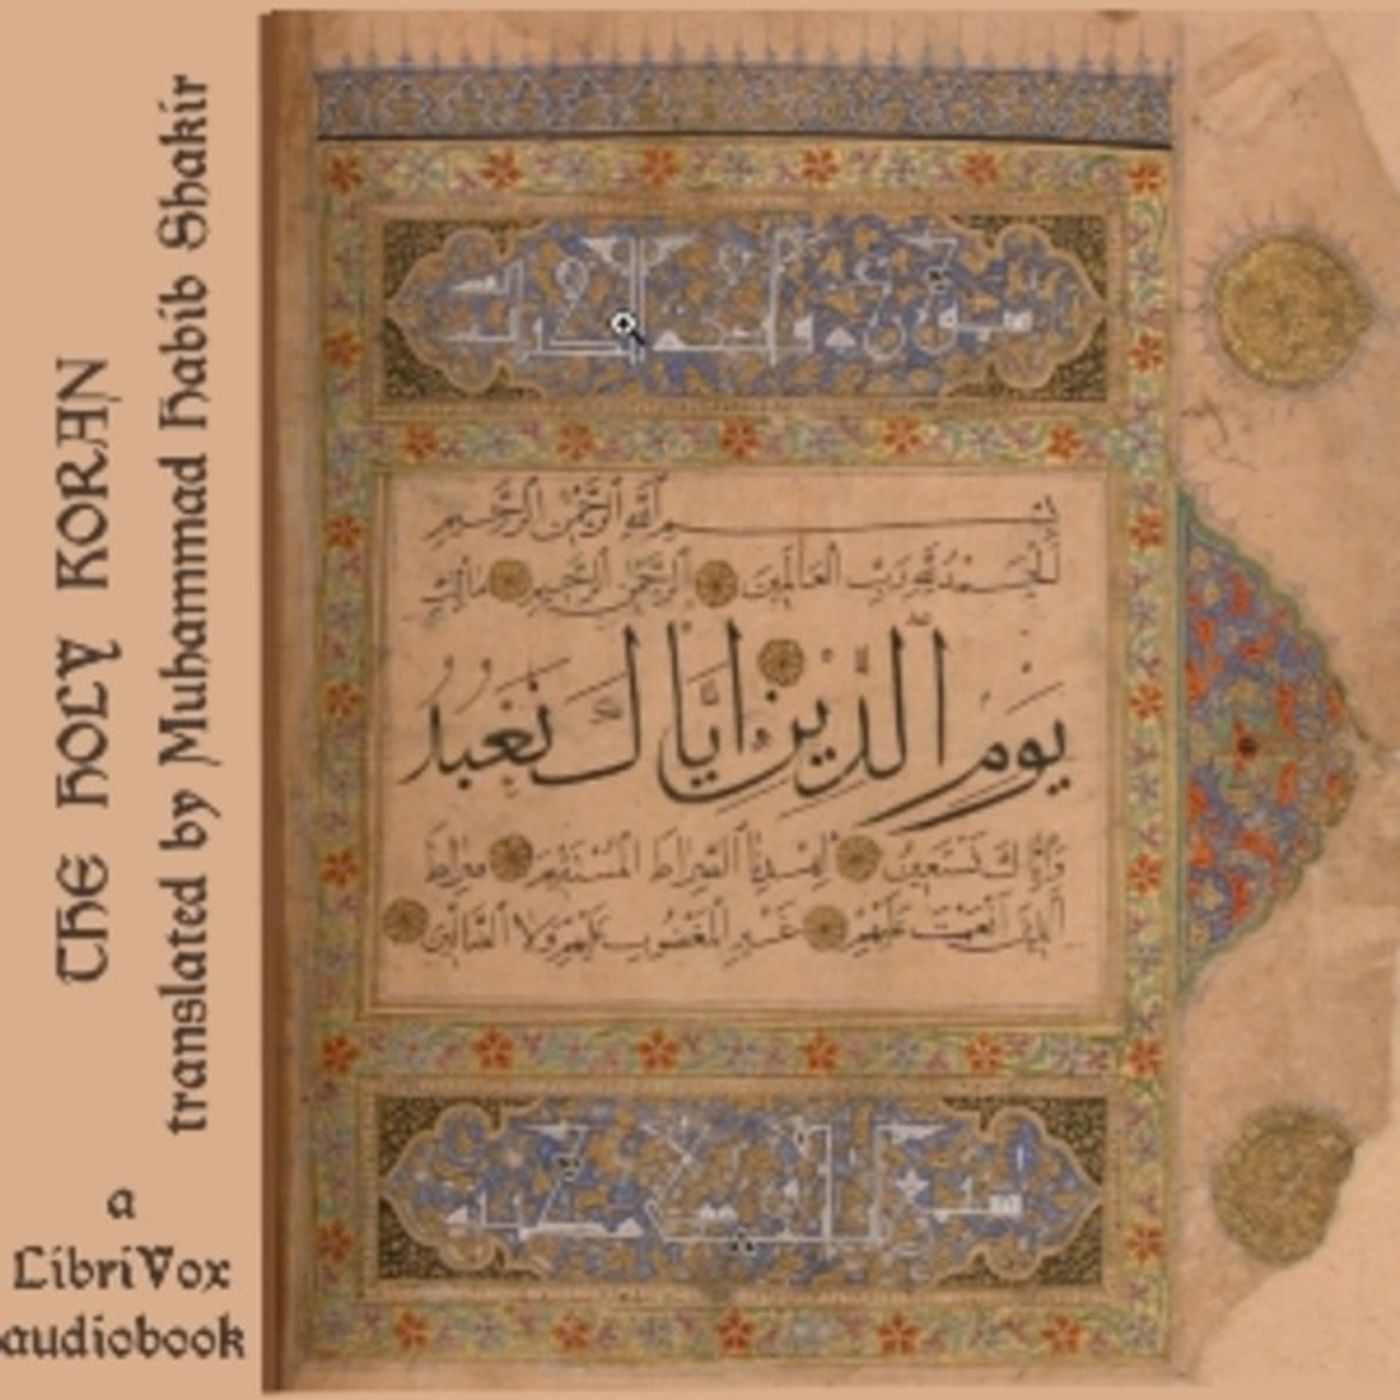 THE HOLY KORAN
translated by Muhammad Habib Shakir
a
LibriVox
audiobook
بِسْمِ ٱللَّهِ ٱلرَّحْمَٰنِ ٱلرَّحِيمِ
ٱلْحَمْدُ لِلَّهِ رَبِّ ٱلْعَالَمِينَ ٱلرَّحْمَٰنِ ٱلرَّحِيمِ مَالِكِ
يَوْمِ ٱلدِّينِ إِيَّاكَ نَعْبُدُ
وَإِيَّاكَ نَسْتَعِينُ ٱهْدِنَا ٱلصِّرَاطَ ٱلْمُسْتَقِيمَ صِرَاطَ
ٱلَّذِينَ أَنْعَمْتَ عَلَيْهِمْ غَيْرِ ٱلْمَغْضُوبِ عَلَيْهِمْ وَلَا ٱلضَّالِّينَ